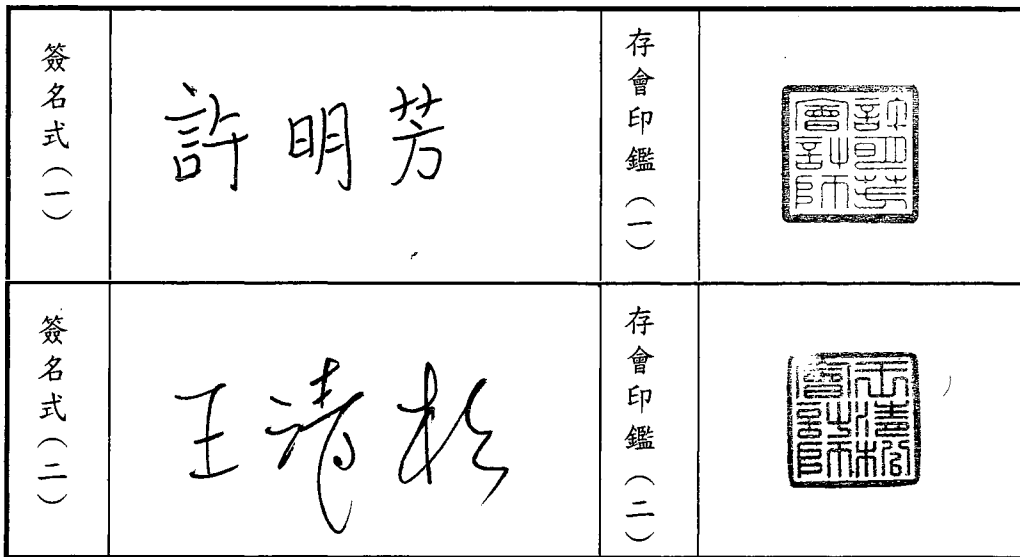 簽名式(一)
許明芳
存會印鑑(一)
許明芳會計師
簽名式(二)
王清松
存會印鑑(二)
王清松會計師